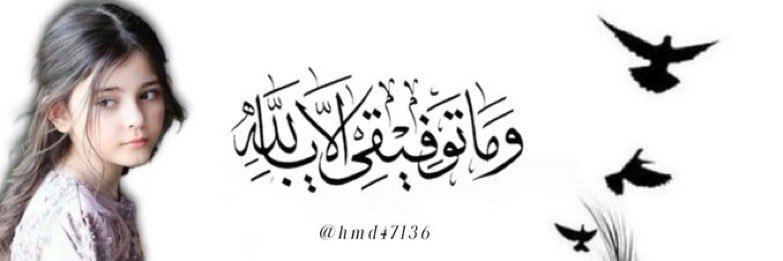 وَمَا تَوْفِيْقِى اِلَّا بِاللّٰهِ
@hmd47136